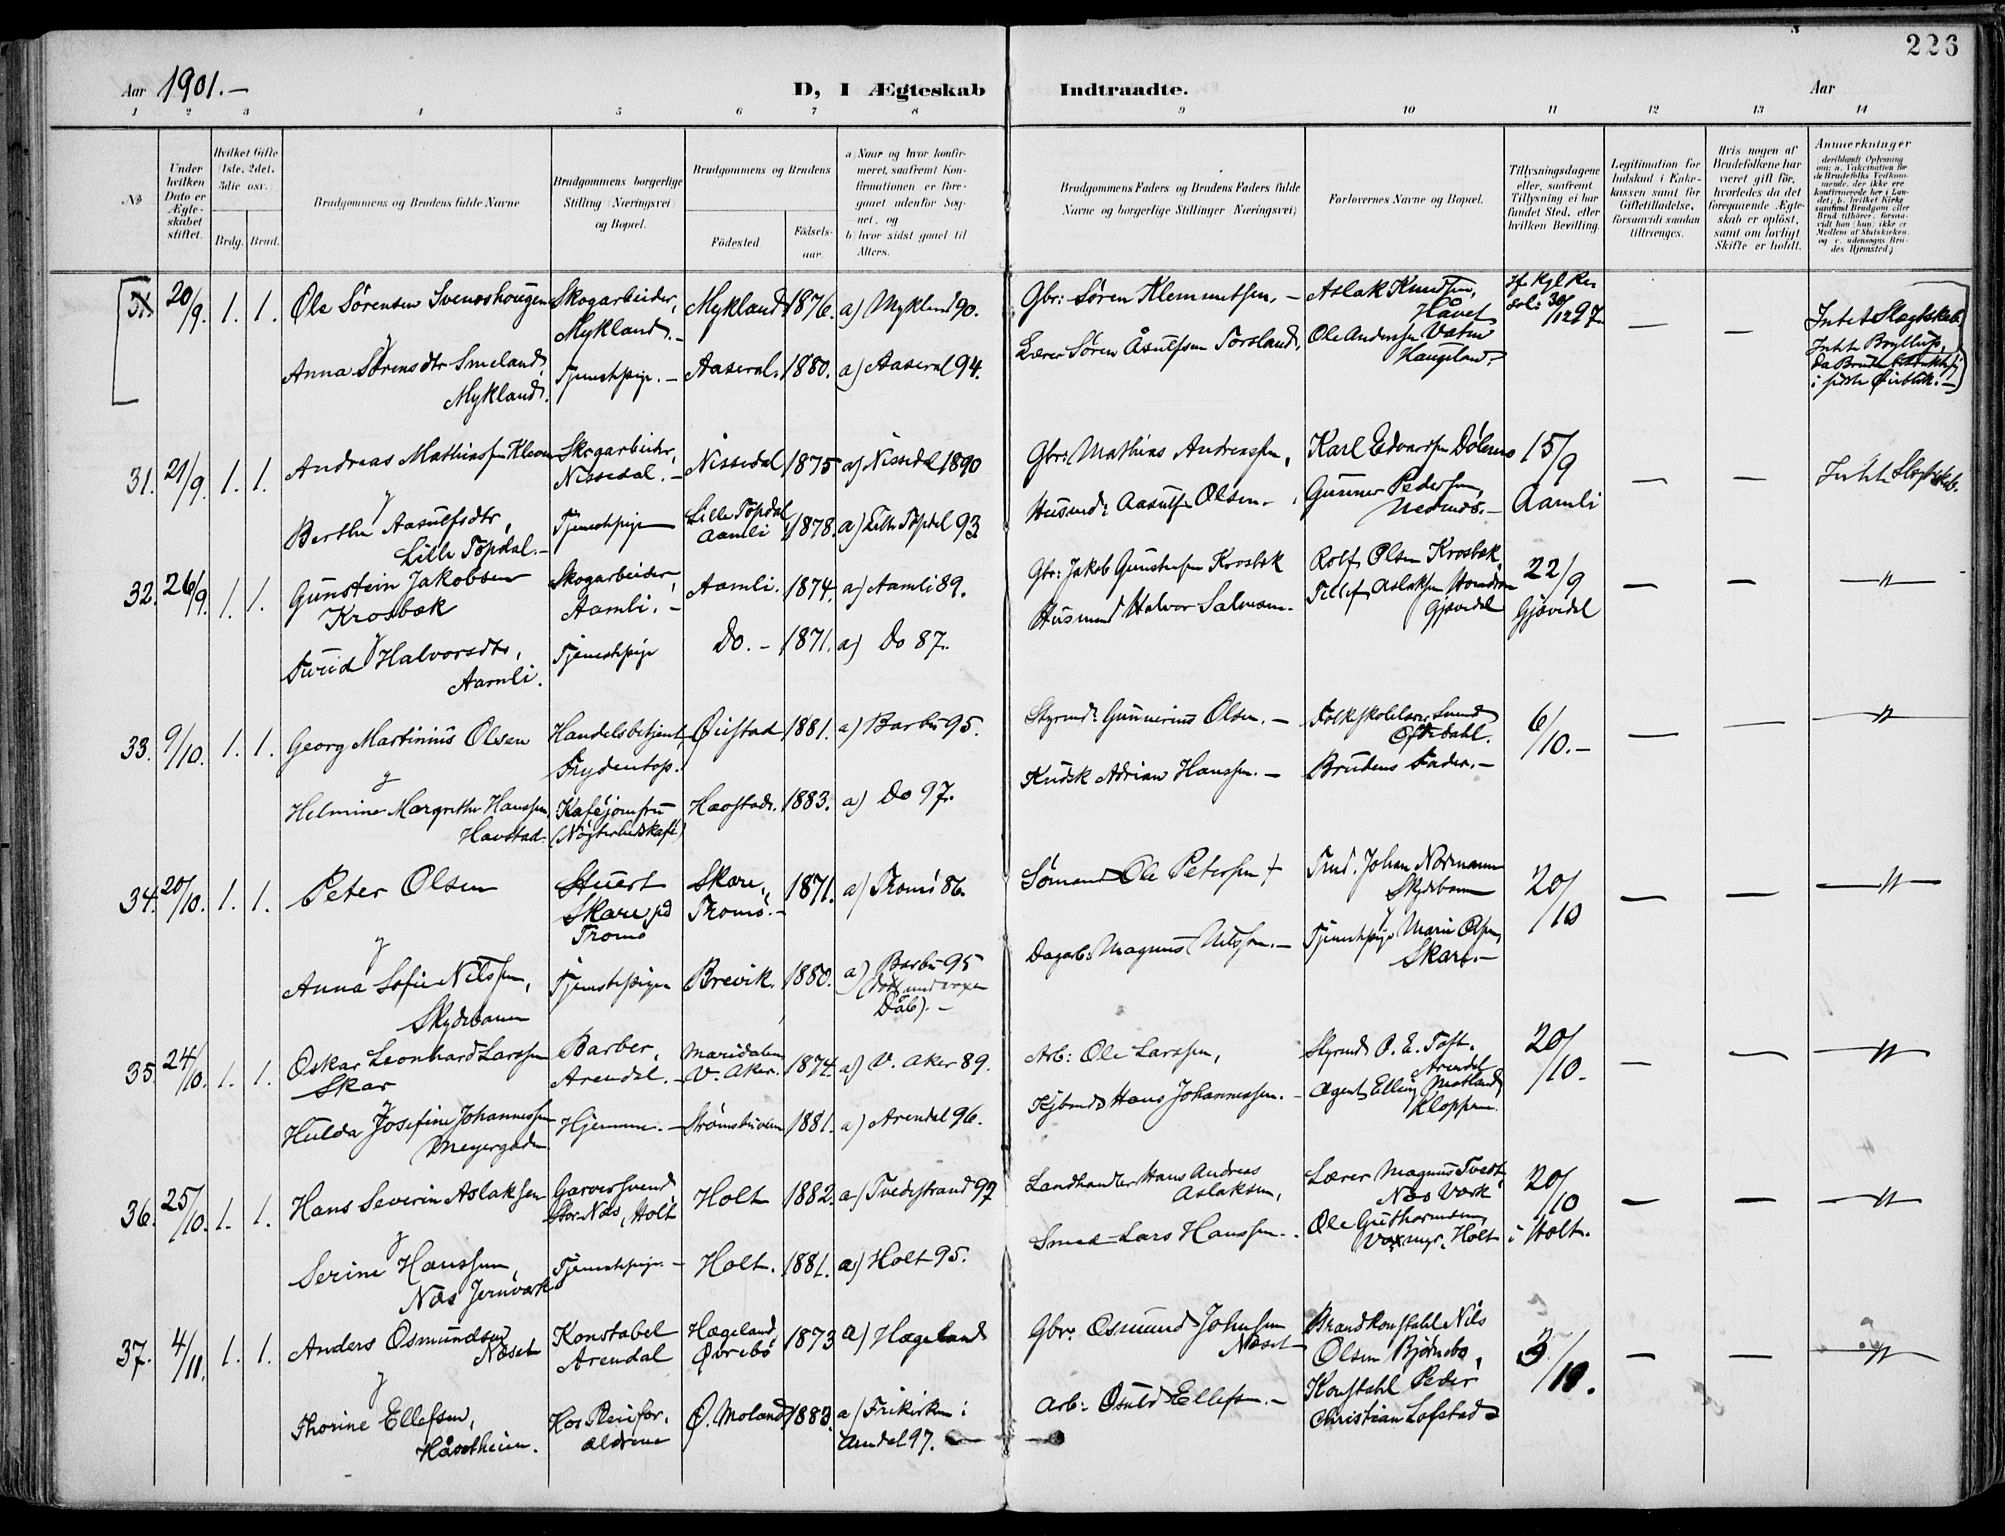 226
Aar 1901.–
D, I Ægteskab Indtraadte.
Aar
1 2 3 4 5 6 7 8 9 10 11 12 13 14
No
Under hvilken Dato er Ægteskabet stiftet.
Hvilket Gifte (1ste, 2det, 3die osv.)
Brdg. Brud.
Brudgommens og Brudens fulde Navne
Brudgommens borgerlige Stilling (Næringsvei) og Bopæl.
Brudgommens og Brudens
Födested. Födsels-aar.
a) Naar og hvor konfirmeret, saafremt Konfirmationen er foregaaet udenfor Sognet, og
b) hvor sidst gaaet til Alters.
Brudgommens Faders og Brudens Faders fulde Navne og borgerlige Stillinger (Næringsvei)
Forlovernes Navne og Bopæl.
Tillysningsdagene eller, saafremt Tillysning ei har fundet Sted, efter hvilken Bevilling.
Legitimation for Indskud i Enkekassen samt for Giftetilladelse, forsaavidt saadan tiltrænges.
Hvis nogen af Brudefolkene har været gift før, hvorledes da det foregaaende Ægteskab er opløst, samt om lovligt Skifte er holdt.
Anmærkninger
31 20/9. 1. 1. Ole Sørensen Svenoshougen Skogarbeider, Mykland.– Mykland 1876. a) Mykland 90. Gbr: Søren Klemmetsen.– Aslak Knudsen, Håvet
30/12 97. — — Intet Slægtskab
Anna Sørensdtr Smeland, Mykland. Tjenestepige.– Aaseral. 1880. a) Aaseral 94. Lærer Søren Åsulfsen Torsland, Ole Andersen Vatne Haugeland.
Intet Bryllup, da Bruden
31. 21/9. 1. 1. Andreas Mathiassen Kleven Skogarbeider, Nissedal.– Nissedal 1875 a) Nissedal 1890 Gbr: Mathias Andreassen, Karl Edvardsen Dölemo 15/9 Aamli — — Intet Slægtskab.
g
Berthe Aasulfsdtr, Lille Topdal.– Tjenestepige Lille Topdal Aamli 1878. a) Lille Topdal 93 Husmd: Aasulf Olsen. Gunner Pedersen
32. 26/9. 1. 1. Gunstein Jakobsen Krosbæk Skogarbeider, Aamli.– Aamli. 1874. a) Aamli 89. Gbr: Jakob Gunstensen Krosbæk Rolf Olsen Krosbæk 22/9 Gjøvidal — — "
g
Turid Halvorsdtr, Aamli. Tjenestepige Do.– 1871. a) Do 87. Husmand Halvor Salvesen. Tellef Aslaksen Gjøvidal
33. 9/10. 1. 1. Georg Martinius Olsen Handelsbetjent, Frydentop. Øiestad 1881. a) Barbu 95. Styrmd: Gunnerius Olsen.– Folkskolelærer 6/10.– — — "
g
Helmine Margrethe Hanssen Havstad. Kaféjomfru (Nøgterhedskafé) Havstad. 1883. a) Do 97. Kudsk Adrian Hanssen.– Brudens Fader.–
34. 20/10. 1. 1. Peter Olsen Stuert Skare på Tromø Skare, Tromø.– 1871. a) Tromø 86. Sømand Ole Petersen + Johan Normann Skydebanen 20/10 — — "
g
Anna Sofie Nilssen, Skydebanen Tjenestepige Brevik. 1880. a) Barbu 95 Dåb).– Dagarb: Magnus Nilssen.– Tjenestepige Marie Olsen, Skare.–
35. 24/10. 1. 1. Oskar Leonhard Larssen Skar Barber, Arendal.– Maridalen V. Aker. 1874. a) V. Aker 89. Arb: Ole Larssen, Styrmd O. E. Toft. Arendal 20/10– — — "
g
Hulda Josefine Johannessen Meyergaden Hjemme.– Strømsbuveien 1881. a) Arendal 96. Hans Johannessen.– Agent Elling Matland Kloppen.
36. 25/10. 1. 1. Hans Severin Aslaksen Garversvend Stor. Næs, Holt Holt 1882 a) Tvedestrand 97 Landhandler Hans Andreas Aslaksen, Lærer Magnus Tvedt, Næs Værk 20/10 i Holt. — — "
g
Serine Hanssen, Næs Jernværk Tjenestepige.– Holt. 1881. a) Holt 95. Smed Lars Hanssen. Ole Guthormsen, Voxmyr, Holt
37. 4/11. 1. 1. Anders Osmundsen Næset Konstabel Arendal Hægeland Øvrebø 1873 a) Hægeland Gbr. Osmund Johnsen Næset Brandkonstabl Nils Olsen Bjørnebo, 3/10. — — "
g
Thorine Ellefsen, Håvetheien. Hos Forældrene Ø. Moland 1883. a) Frikirken i Arendal 97. Arb: Osuld Ellefsen.– Konstabl Peder Christian Lofstad